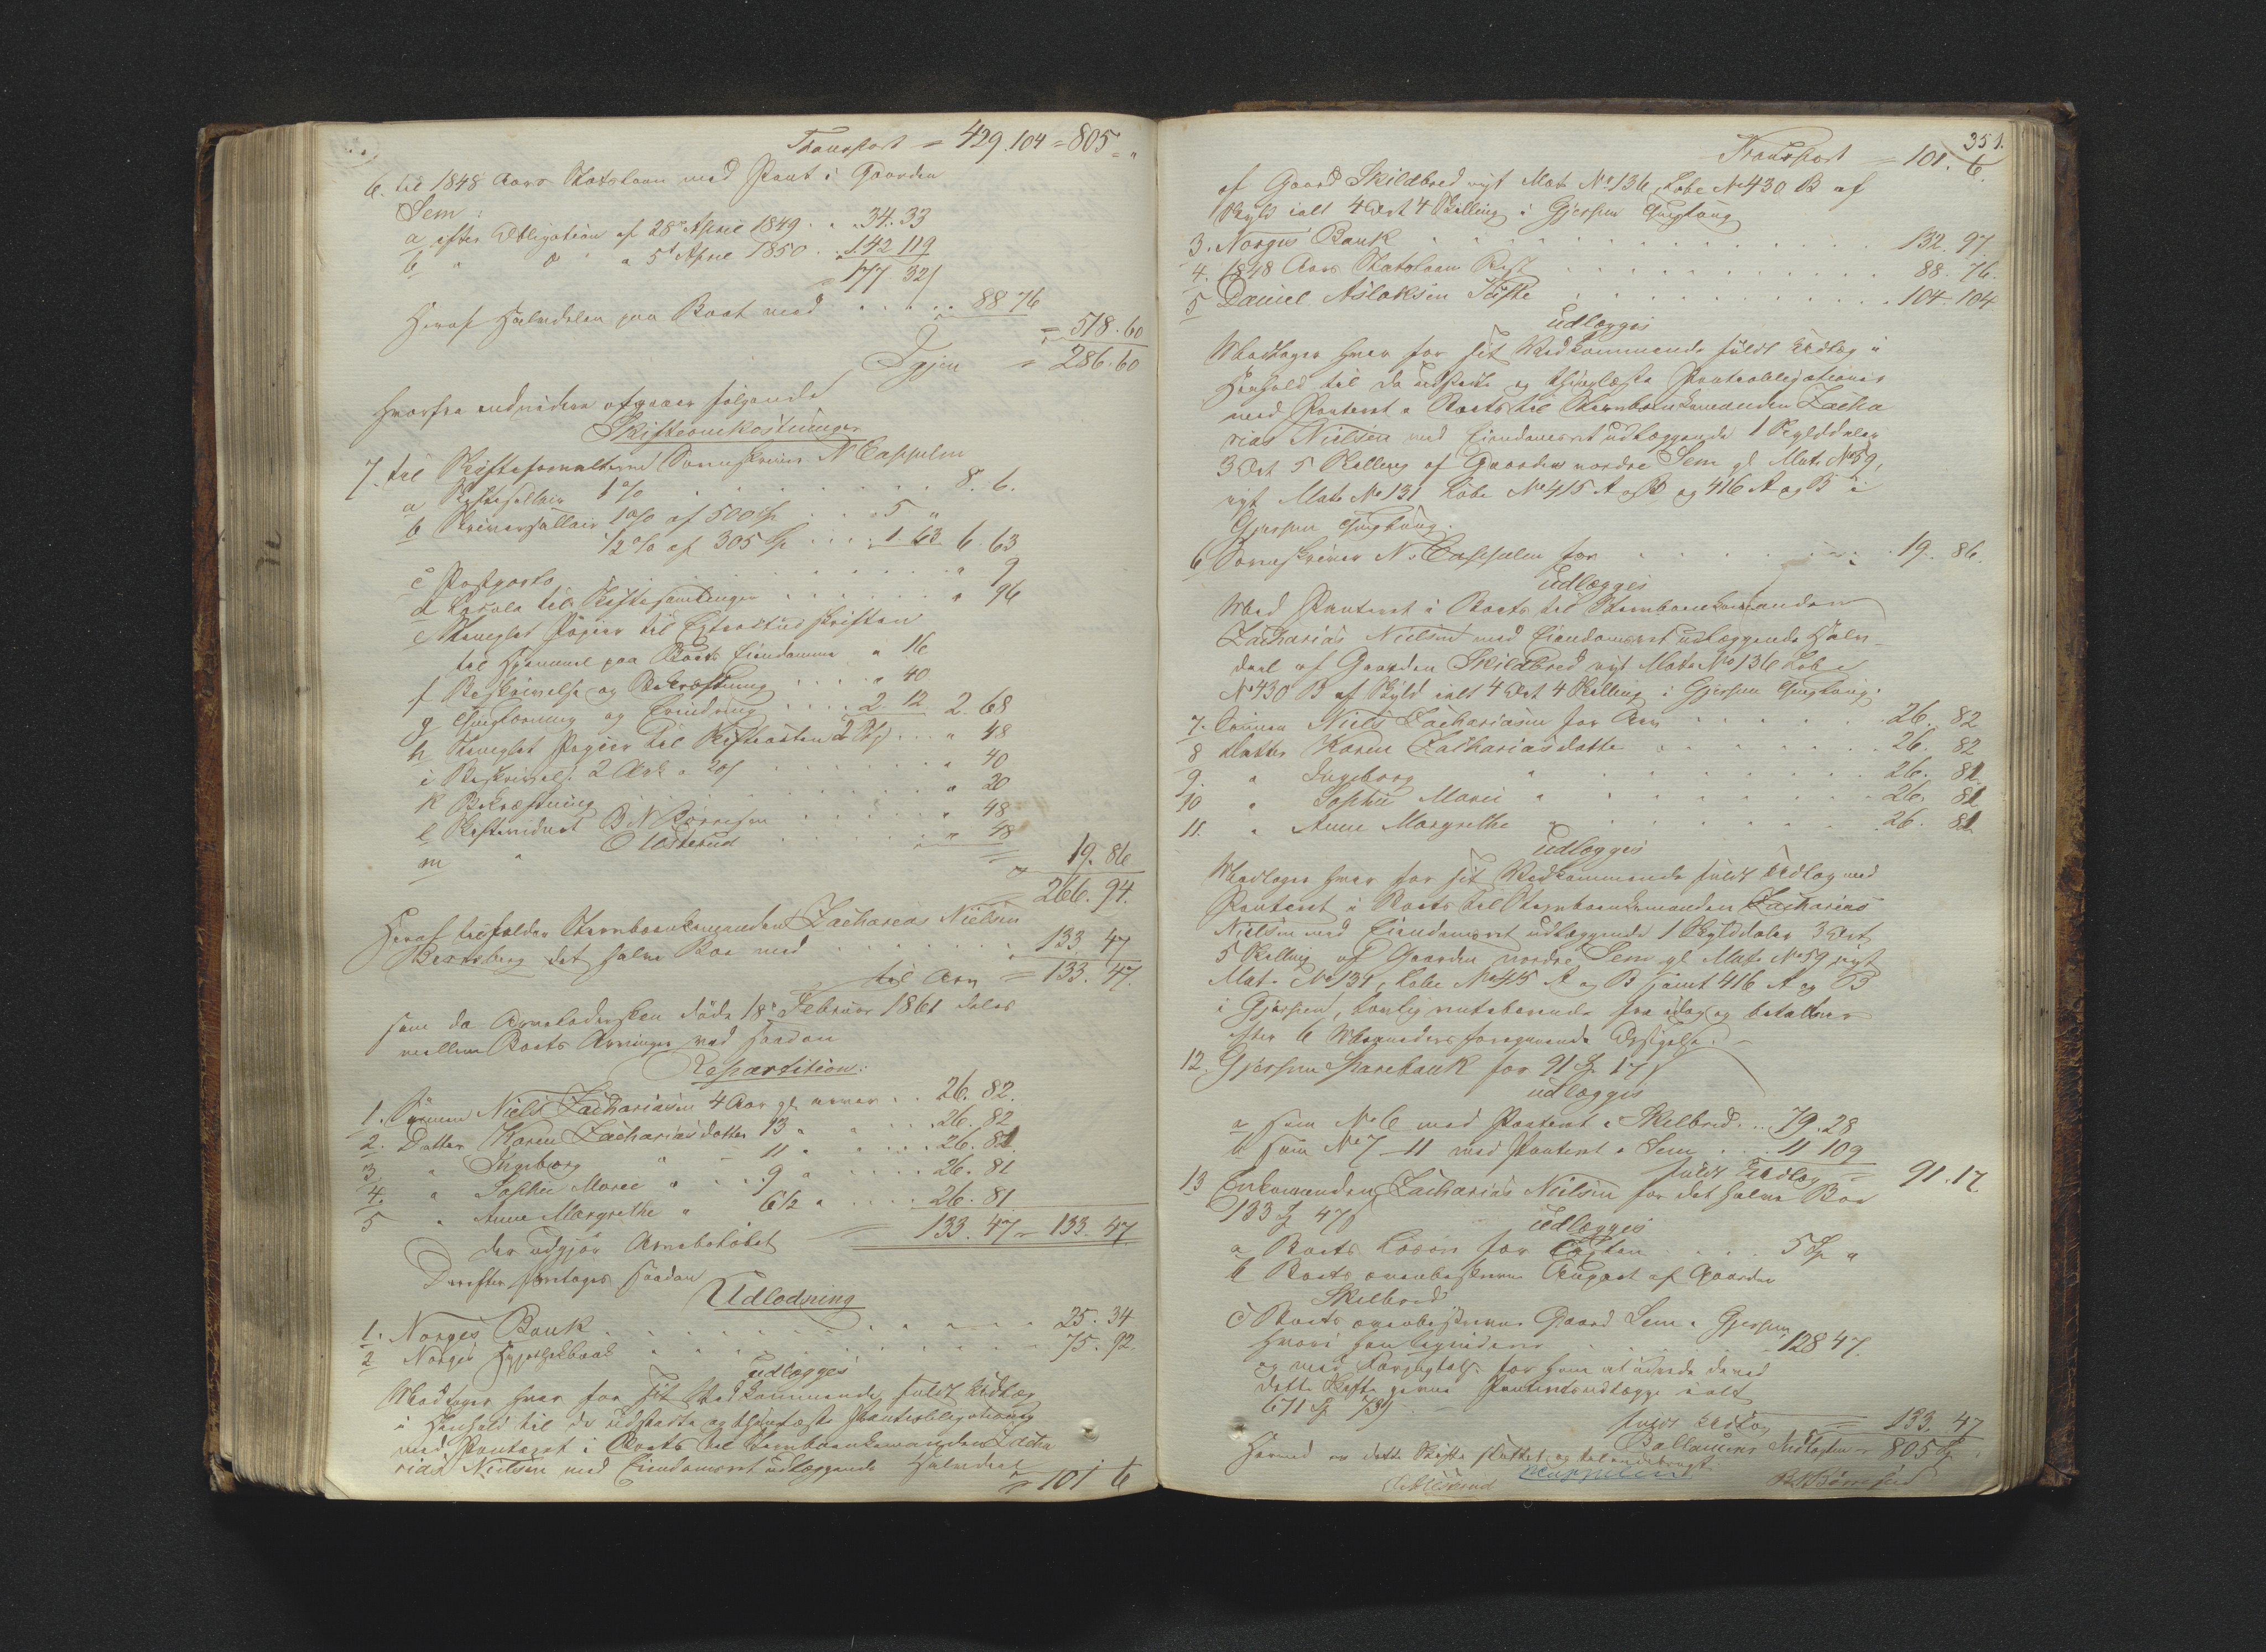 Transport = 429. 104 = 805 = "
6. til 1848 Aars Statslaan med Pant i Gaarden
Sem:
a efter Obligation af 28de April 1849 . . 34. 33
b " D " a 5te April 1850 . . 142 119
= 177 32
Heraf Halvdelen paa Boet med . . . . 88 76
= 518. 60
Igjen = 286. 60
hvorfra endvidere afgaaer følgende
Skifteomkostninger
7. til Skifteforvalteren Sorenskriver N Cappelen
a Skiftesallair 1 % . . . . . . 8. 6.
b Skriversallair 1 % af 500 Sp . . . 5 "
1/2 % af 305 Sp . . . 1 63 6. 63
c Postporto . . . . . . " 9
d Lokale til Skiftesamlinger . . . . . " 96
e Stemplet Papier til Extractudskriften
til Hjemmel paa Boets Eiendomme " 16
f Beskrivelse og Bekræftning . . . " 40
g Thinglæsning og Erindring . . . 2 12 2. 68
h Stemplet Papier til Skifteacten . . " 48
i Beskrivelse 2 Ark a 20 . . . . . " 40
k Bekræftning . . . . . . " 20
l Skiftevidnet B N Børresen . . . . " 48
m " . . . . . " 48
" 19. 86
= 266. 94.
Heraf tilfalder Stervboenkemanden Zacharias Nielsen
det halve Boe med . . . . . 133 47
til Arv = 133. 47.
som da Arveladersken døde 18de Februar 1861 deles
mellem Boets Arvinger ved saadan
Repartition:
1. Sønnen Niels Zachariasen 4 Aar gl arver . . 26. 82.
2. Datter Karen Zachariasdatter 13 " . . . 26. 82
3. " Ingeborg " 11 " . . . 26. 81.
4. " Sophie Marie " 9 " . . . 26. 81
5 " Anne Margrethe " 6 1/2 " . . . 26. 81
der udgjør Arvebeløbet = 133. 47 = 133. 47.
Derefter foretages saadan
Udlodning
1. Norges Bank . . . . . . . 25. 34
2 Norges Hypothekbank . . . . . . 75. 92.
udlægges
Modtager hver for sit Vedkommende fuldt Udlæg
i Henhold til de udstedte og thinglæste Panteobligationer
med Panteret i Boets til Stervboenkemanden Zacha
rias Nielsen med Eiendomsret udlæggende Halvdeel
= 101 6
351.
Transport = 101. 6.
af Gaard Skildbred nyt Mat No 136, Løbe No 430 B af
Skyld ialt 4 Ort 4 Skilling i Gjerpen Thinglaug
3. Norges Bank . . . . . . . 132. 97.
4. 1848 Aars Statslaan Rest . . . . . . 88. 76.
5 Daniel Aslaksen Tufte . . . . . . 104. 104
udlægges
Modtager hver for sit Vedkommende fuldt Udlæg i
Henhold til de udstedte og thinglæste Panteobligationer
med Panteret i Boets til Stervboenkemanden Zacha
rias Nielsen med Eiendomsret udlæggende 1 Skylddaler
3 Ort 5 Skilling af Gaarden nordre Sem gl Mat. No 59,
nyt Mat No 131 Løbe No 415 A og B og 416 A og B i
Gjerpen Thinglaug.
6 Sorenskriver N. Cappelen for . . . . . 19. 86.
udlægges
Med Panteret i Boets til Stervboenkemanden
Zacharias Nielsen med Eiendomsret udlæggende Halv-
deel af Gaarden Skildbred nyt Mat No 136 Løbe
No 430 B af Skyld ialt 4 Ort 4 Skilling i Gjerpen Thinglaug.
7. Sønnen Niels Zachariasen for Arv . . . . . 26. 82
8 Datter Karen Zachariasdatter . . . . . 26. 82
9. " Ingeborg " . . . . . 26. 81
10 " Sophie Marie " . . . . . 26. 81
11. " Anne Margrethe " . . . . . 26. 81
udlægges
Modtager hver for sit Vedkommende fuldt Udlæg med
Panteret i Boets til Stervboenkemanden Zacharias
Nielsen med Eiendomsret udlæggende 1 Skylddaler 3 Ort
5 Skilling af Gaarden nordre Sem gl Mat. No 59 nyt
Mat. No 131, Løbe No 415 A og B samt 416 A og B
i Gjerpen, lovlig rentebærende fra idag og betales
efter 6 Maaneders foregaaende Opsigelse. -
12. Gjerpens Sparebank for 91 Sp 17
udlægges
a som No 6 med Panteret i Skilbred . . 79. 28
b som No 7-11 med Panteret i Sem . . . 11 109
fuldt Udlæg = 91. 17.
13 Enkemanden Zacharias Nielsen for det halve Boe
133 Sp 47
udlægges
a Boets Løsøre for Taxten . . . . 5 Sp "
b Boets ovenbeskrevne Anpart af Gaarden
Skilbred
c Boets ovenbeskrevne Gaard Sem i Gjerpen,
hvori han . . . . 128 47.
og med Forpligtelse for ham at udrede de ved
dette Skifte gjorte Panteudlægge ialt
671 Sp 73
fuldt Udlæg = 133. 47
Ballancerer Indtægten = 805 Sp
Hermed er dette Skifte sluttet og tilendebragt.
NCappelen
B N Børresen